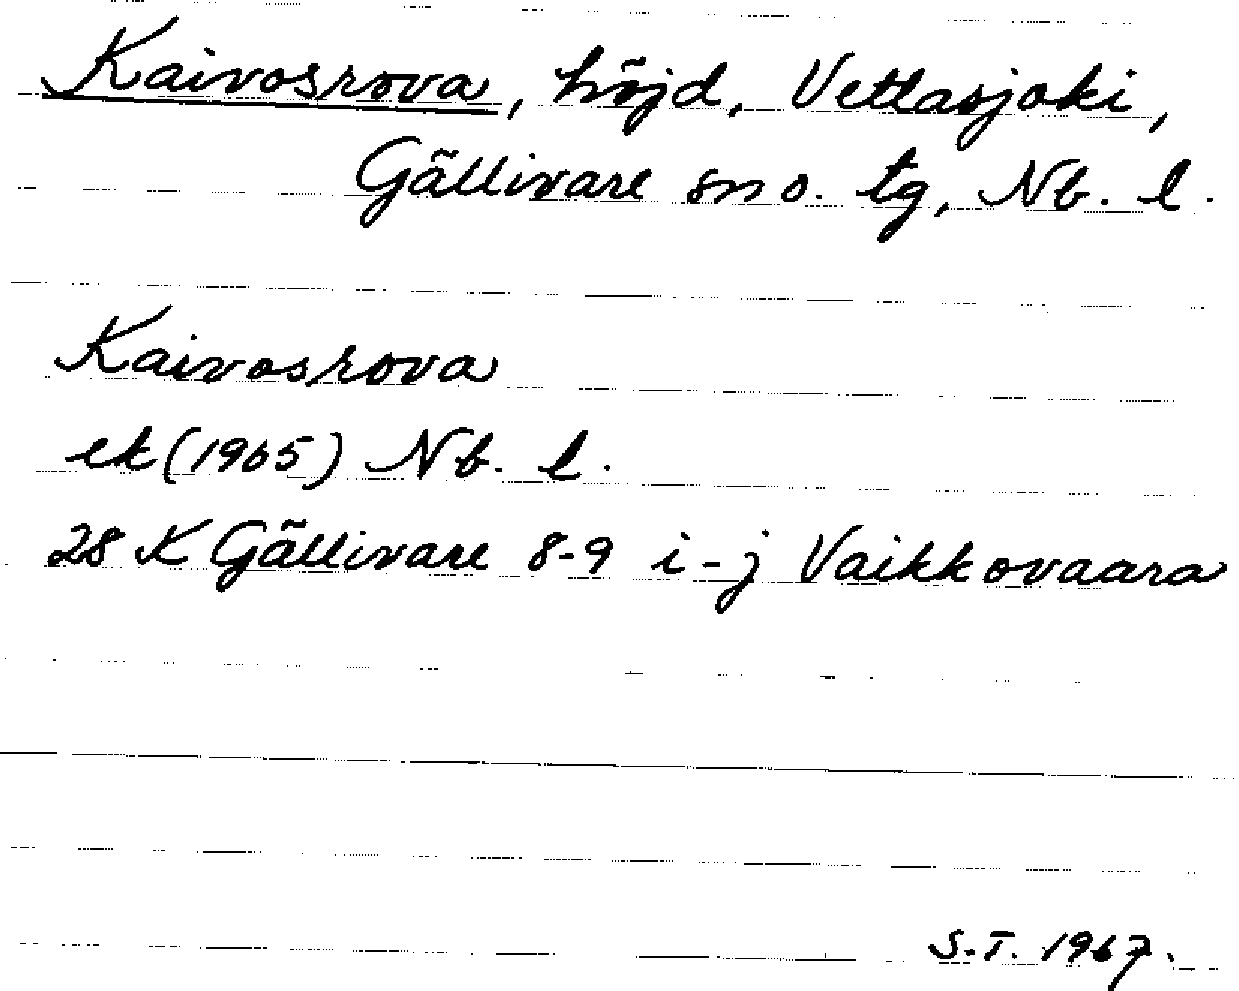 Kaivosrova, höjd, Vettasjoki,
Gällivare sn o. tg, Nb. l.
Kaivosrova
ek (1965) Nb. l.
28 K Gällivare 8-9 i-j Vaikkovaara
S.T. 1967.